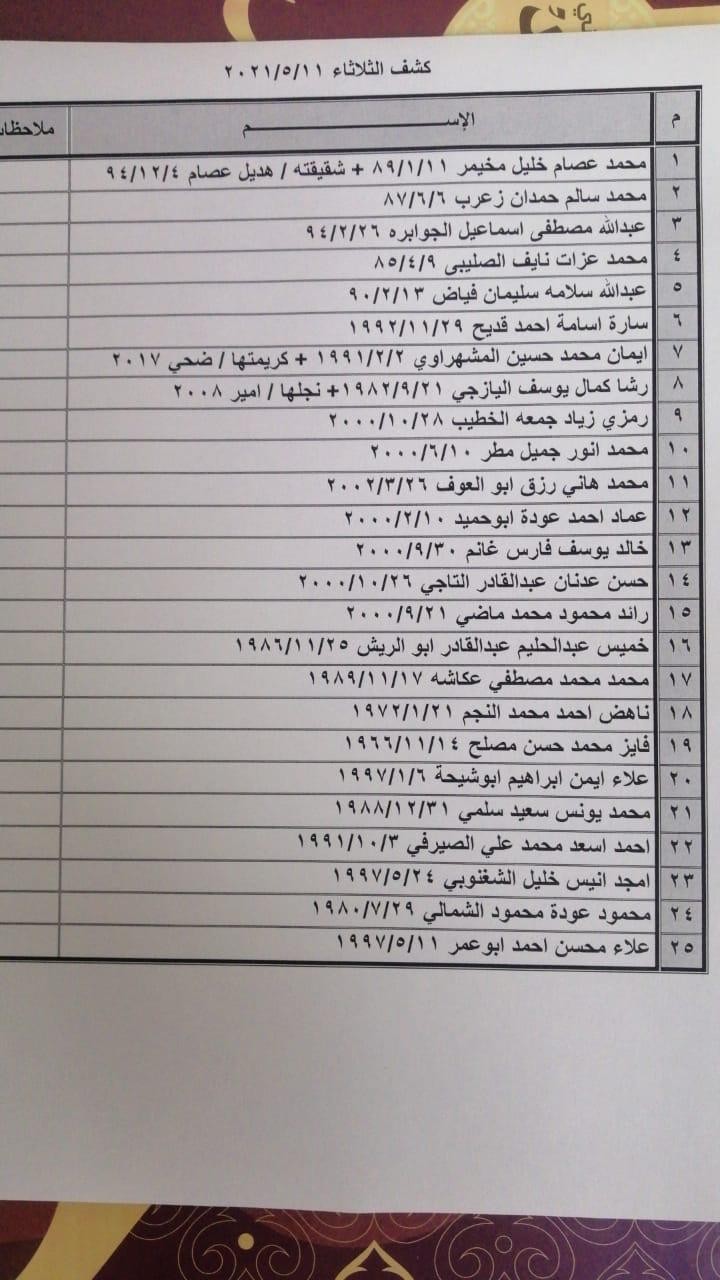 كشف الثلاثاء ٢٠٢١/٥/١١
م الإســـــــــم ملاحظات
١ محمد عصام خليل مخيمر ٨٩/١/١١ + شقيقته / هديل عصام ٩٤/١٢/٤
٢ محمد سالم حمدان زعرب ٨٧/٦/٦
٣ عبدالله مصطفى اسماعيل الجوابره ٩٤/٢/٢٦
٤ محمد عزات نايف الصليبي ٨٥/٤/٩
٥ عبدالله سلامه سليمان فياض ٩٠/٢/١٣
٦ سارة اسامة احمد قديح ١٩٩٢/١١/٢٩
٧ ايمان محمد حسين المشهراوي ١٩٩١/٢/٢ + كريمتها / ضحي ٢٠١٧
٨ رشا كمال يوسف اليازجي ١٩٨٢/٩/٢١+ نجلها / امير ٢٠٠٨
٩ رمزي زياد جمعه الخطيب ٢٠٠٠/١٠/٢٨
١٠ محمد انور جميل مطر ٢٠٠٠/٦/١٠
١١ محمد هاني رزق ابو العوف ٢٠٠٢/٣/٢٦
١٢ عماد احمد عودة ابوحميد ٢٠٠٠/٢/١٠
١٣ خالد يوسف فارس غانم ٢٠٠٠/٩/٣٠
١٤ حسن عدنان عبدالقادر التاجي ٢٠٠٠/١٠/٢٦
١٥ رائد محمود محمد ماضي ٢٠٠٠/٩/٢١
١٦ خميس عبدالحليم عبدالقادر ابو الريش ١٩٨٦/١١/٢٥
١٧ محمد محمد مصطفي عكاشه ١٩٨٩/١١/١٧
١٨ ناهض احمد محمد النجم ١٩٧٢/١/٢١
١٩ فايز محمد حسن مصلح ١٩٦٦/١١/١٤
٢٠ علاء ايمن ابراهيم ابوشيحة ١٩٩٧/١/٦
٢١ محمد يونس سعيد سلمي ١٩٨٨/١٢/٣١
٢٢ احمد اسعد محمد علي الصيرفي ١٩٩١/١٠/٣
٢٣ امجد انيس خليل الشغنوبي ١٩٩٧/٥/٢٤
٢٤ محمود عودة محمود الشمالي ١٩٨٠/٧/٢٩
٢٥ علاء محسن احمد ابوعمر ١٩٩٧/٥/١١